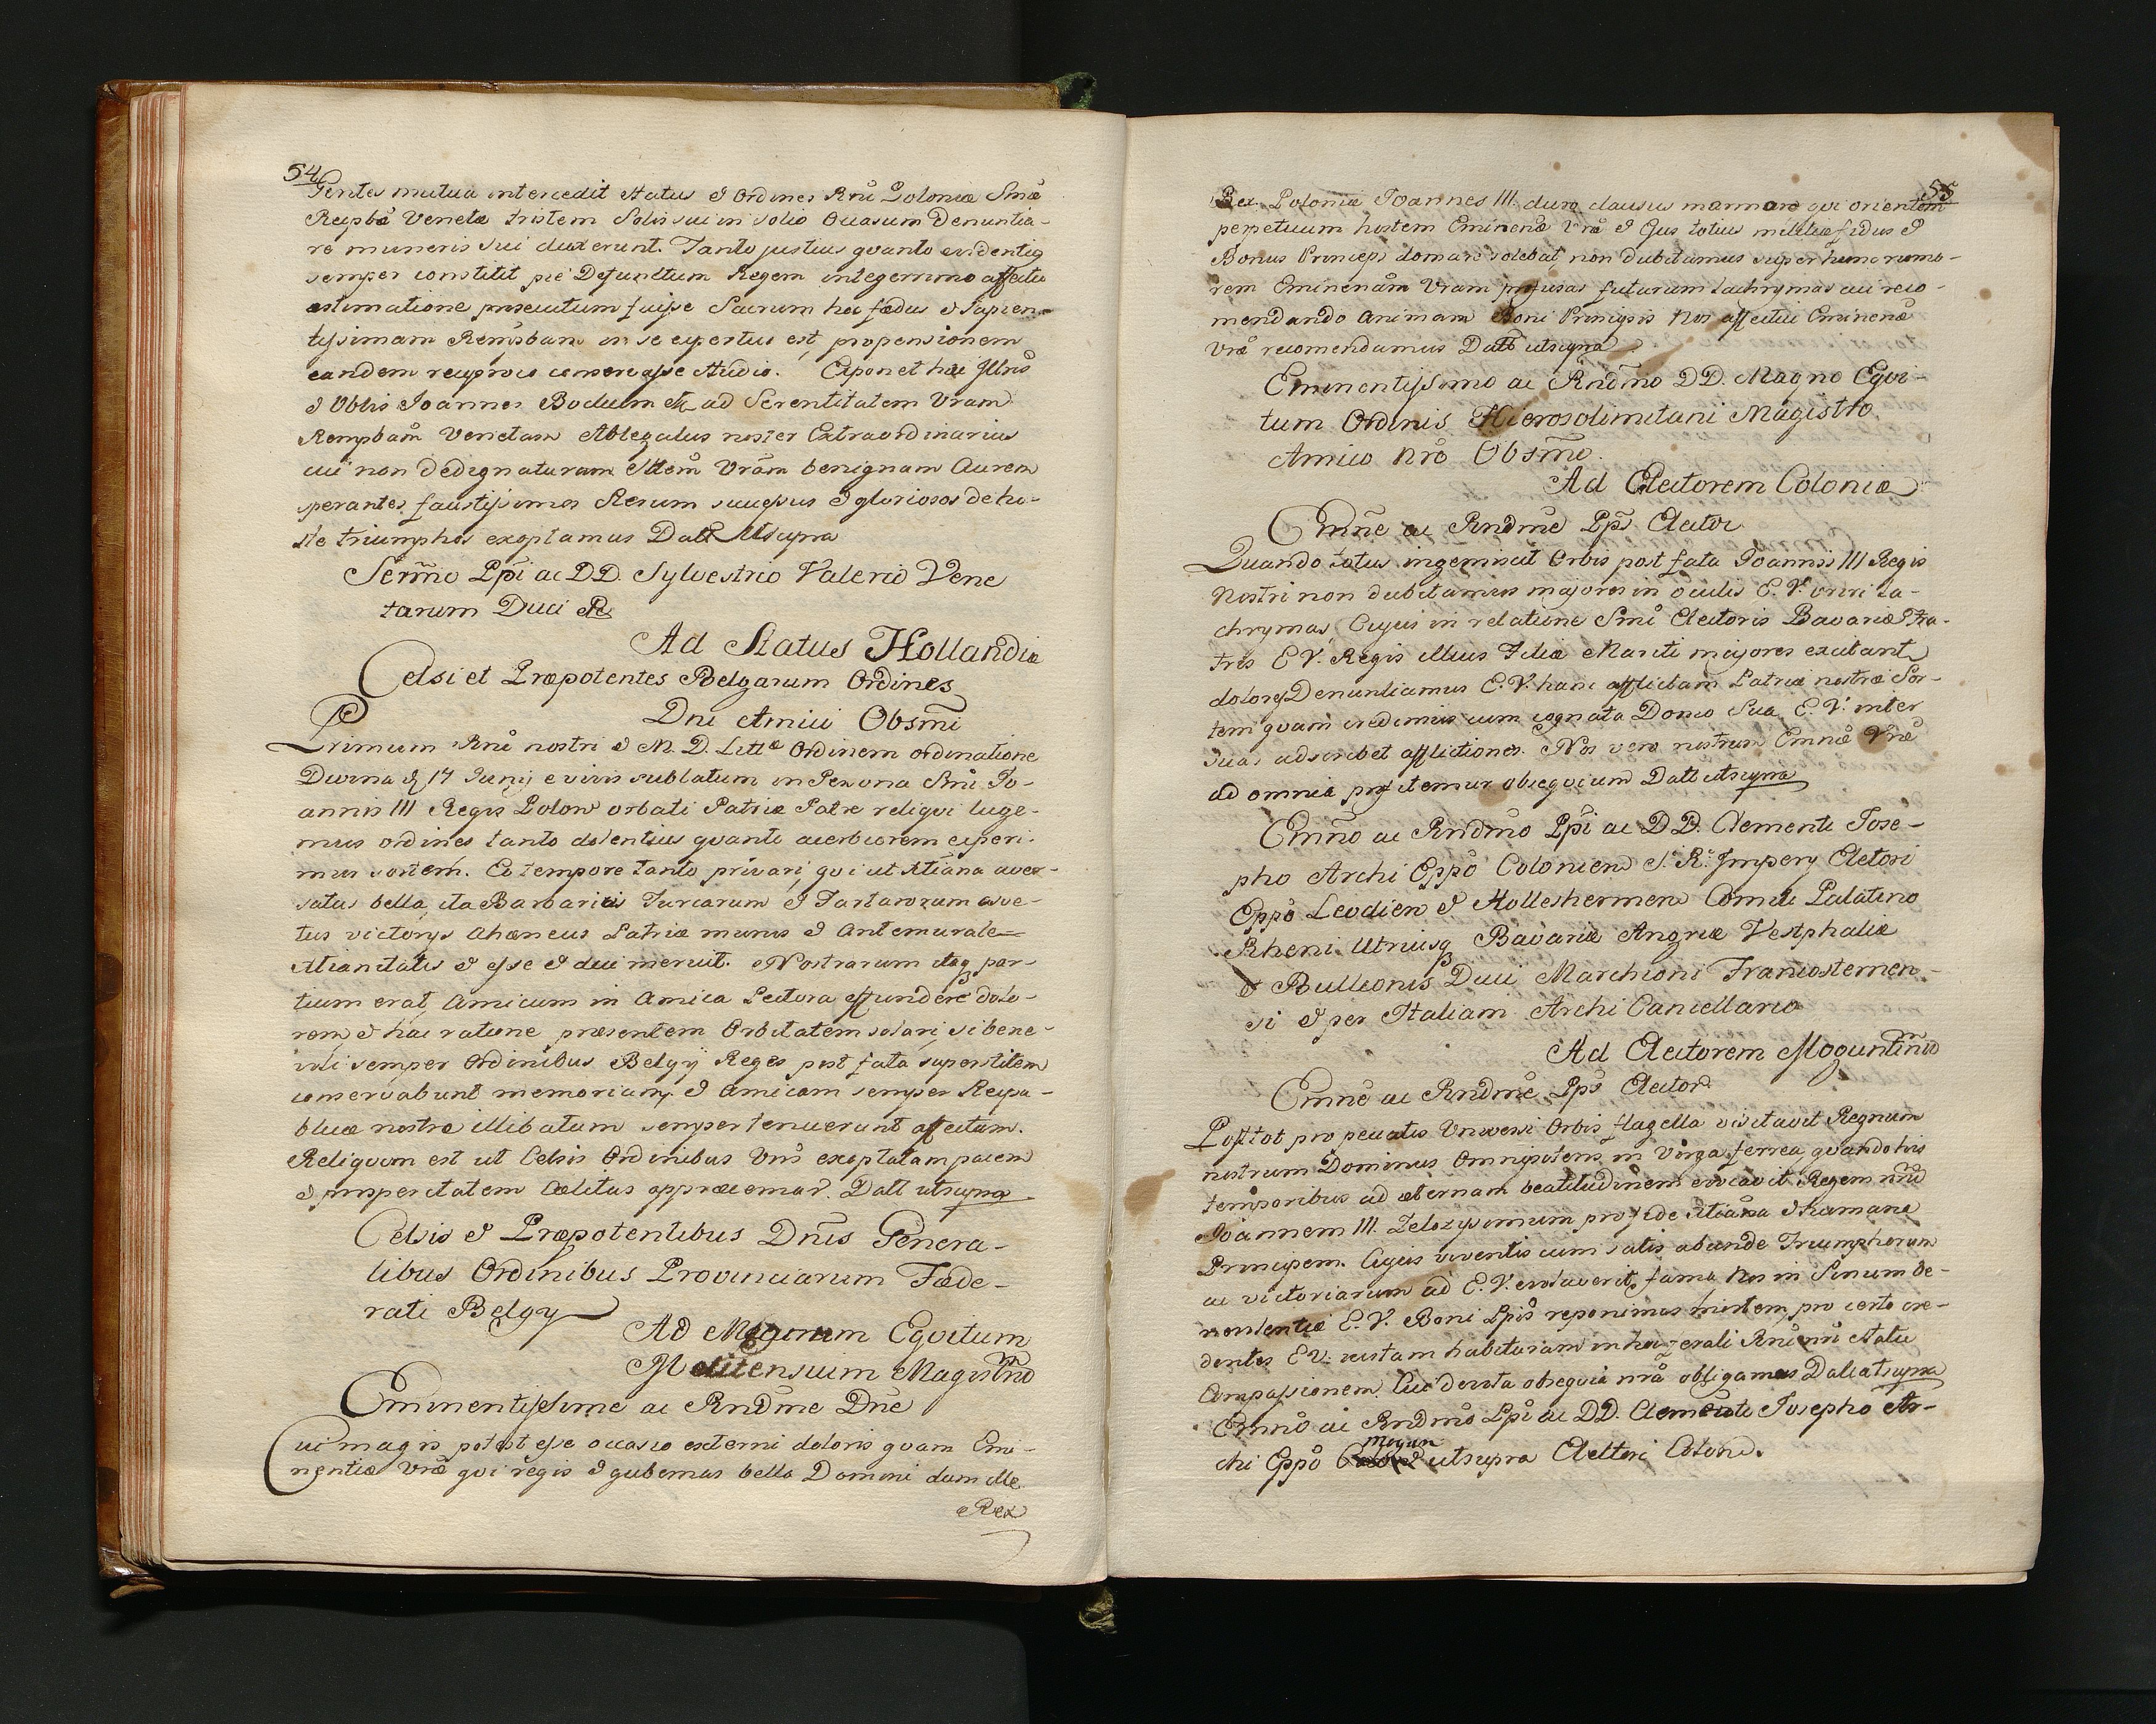 54
Gentes mutua intercedit Status & Ordines Rnĩ Poloniæ Smæ
Reipbæ Venetæ tristem Solis sui in solio Occasum Denuntia-
re muneris sui duxerunt. Tanto justius quanto evidentiq
semper constitit pie Defunctum Regem integerrimo affectu
æstimatione prosecutum fuisse Sacrum hoc fœdus & Sapien-
tissimam Rempbam in se expertus est, propensionem
eandem reciproco conservasse studio. Exponet hæc Jllris
& Gblis Joannes Bodum etc ad Serentitatem Vram
Rempbam Venetam Ablegatus noster Extraordinarius
cui non dedignaturam Sttem Vram benignam Aurem
sperantes faustissimos Rerum successus & gloriosos de ho-
ste triumphos exoptamus Datt Utsupra
Sermo Ppi ac DD. Sylvestrio Valerio Vene
tarum Duci etc
Ad Status Hollandiæ
Celsi et Præpotentes Belgarum Ordines
Dni Amici Obsmi
Primum Rni nostri & M. D. Litt Ordinem ordinatione
Divina d 17 Junij e vivis sublatum in Persona Smi Jo-
annis III Regis Polon orbati Patriæ Patre reliqvi luge-
mus ordines tanto dolentius qvanto acerbiorem experi-
mur sortem. Eo tempore tanto privari, qvi ut Xtiana aver-
satus bella, ita Barbariei Turcarum & Tartarorum asve-
tus victorys Ahæneus Patriæ murus & Antemurale
Xtianitatis & esse & dici meruit. Nostrarum itaq par-
tium erat, Amicum in Amica Pectora effundere dolo-
rem & hac ratione præsentem Orbitatem solari, si bene-
voli semper Ordinibus Belgij Reges post fata superstitem
conservabunt memoriam, & Amicam semper Reipu-
blicæ nostræ illibatum semper tenuerunt affectum.
Reliqvum est ut Celsis Ordinibus Vris exoptatam pacem
& prosperitatem Cælitus apprecemur. Datt utsupra
Celsis & Præpotentibus Dnis Genera-
libus Ordinibus Provinciarum Fæde-
rati Belgy
Ad Magnum Eqvitum
Melitensium Magistrum
Eminentissime ac Rndme Dne
Cui magis potest esse occasio externi doloris qvam Emi-
nentiæ Vræ qvi regis & gubernas bella Domini dum ille
Rex
55
Rex Poloniæ Joannes III. duro clausus marmore qvi orientem
perpetuum hostem Eminenæ Vræ & Ejus totius militiæ fidus &
Bonus Princeps domare solebat, non dubitamus super hunc rumo-
rem Eminenam Vram profusas futurum lachrymas cui reco-
mendando animam Boni Principis Nos affectui Eminenæ
Vræ recomendamus Datt utsupra
Eminentissimo ac Rndmo DD. Magno Eqvi-
tum Ordinis Hierosolimitani Magistro
Amico nro Obsmo.
Ad Electorem Coloniæ
Emne ac Rndme Pps Elector
Quando totus ingemiscit Orbis post fata Joannis III Regis
Nostri non dubitamus majores in oculis E. V. oriri la-
chrymas, Cujus in relatione Smi Electoris Bavariæ Fra-
tris E V. Regis illius Filiæ Mariti majores excitant
dolores Denuntiamus E. V. hanc afflictam Patriæ nostræ Sor-
tem qvam credimus cum cognata Domo Sua E. V. inter
suas adscribet afflictiones. Nos vero nostrum Emnæ Vræ
ad omnia profitemur obseqvium Datt utsupra
Emno ac Rndmo Ppi ac DD. Clementi Jose-
pho Archi Eppo Colonien S. R. Impery Eletori
Eppo Leodien & Hilleshermen Comiti Palatino
Rheni Utriusq Bavariæ Angriæ Vestphaliæ
& Bullionis Duci Marchioni Francostemen-
si & per Italiam Archi Cancellario
Ad Electorem Moguntinum
Emne ac Rndme Pps Elector
Post tot pro peccatis Universi Orbis flagella visitavit Regnum
nostrum Dominus Omnipotens in Virga ferrea, qvando his
temporibus ad æternam beatitudinem evocavit Regem nrum
Joannem III. Zelozissimum pro fide Xtiana & humane
Principem. Cujus viventis cum satis abunde Triumphorum
ac victoriarum ad E. V. evolaverit fama Nos in Sinum be-
nevolentiæ E. V. Boni Ppis reponimus mortem, pro certo cre-
dentes E V. justam habituram in hoc ferali Rni nri Statu
Compassionem, Cui devota obseqvia nra obligamus Datt utsupra
Emno ac Rndmo Ppi ac DD. Clementi Josepho Ar-
chi Eppo Mogun utsupra Electori Colone.